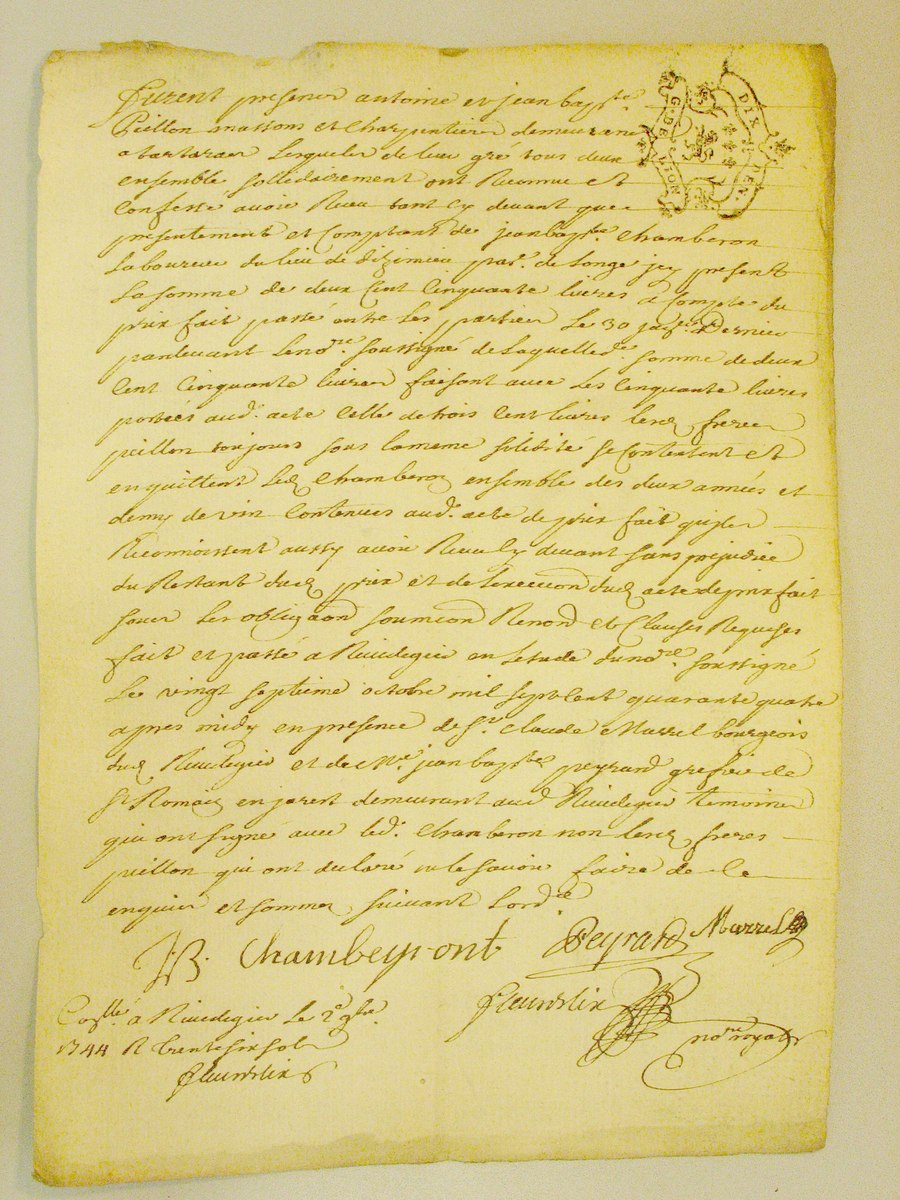 Furent presener antoine et jean bapte
Peillon massons et Charpentier demeurans
a tartaras lesqueler de leur gré tous deux
ensemble sollidairement ont Reconnu et
Confessé avoir Receu tant Cy devant que
presentement et Comptant de jean bapte Chamberon
Laboureur du lieu de dizimieu parr. de Longe jcy present
La somme de deux Cent Cinquante livres a Compte du
prix fait passé entre Les partier Le 30 Dernier
pardevant Le nore. soussigné de Laquelled. somme de deux
Cent Cinquante livres faisant avec Les Cinquante livres
portées aud. acte Celle de trois Cent livres lesd freres
peillon toujours sous la meme solidité se Contentent et
en quittent Led Chamberon ensemble des deux années et
demy de vin Contenues aud. acte de prix fait qu'iler
Reconnoissent aussy avoir Receu Cy devant sans prejudice
du Restant dud prix et de L'execuon dud acte de prix fait
sous Les obligaon soumion Renond et Clauses Requises
fait et passé a Rivedegier en Letude du nore. soussigné
Le vingt septieme octobre mil sept Cent quarante quatre
apres midy en presence de Sr. Claude Marrel bourgeois
dud Rivedegier et de Me. jean bapte peyrard grefier de
St Romain en jarest demeurant aud Rivedegier temoiner
qui ont signé avec led. Chamberon non lesd freres
peillon qui ont declaré ne le savoir faire de Ce
enquier et sommer suivant Lordce
JB. Chambeyront Peyrard Marrel
Fleurdelix
Conllé a Rivedegier Le 2e 9bre
nore royal
1744 R trente six sols
Fleurdelix
G. DE LION
DIX DEN.